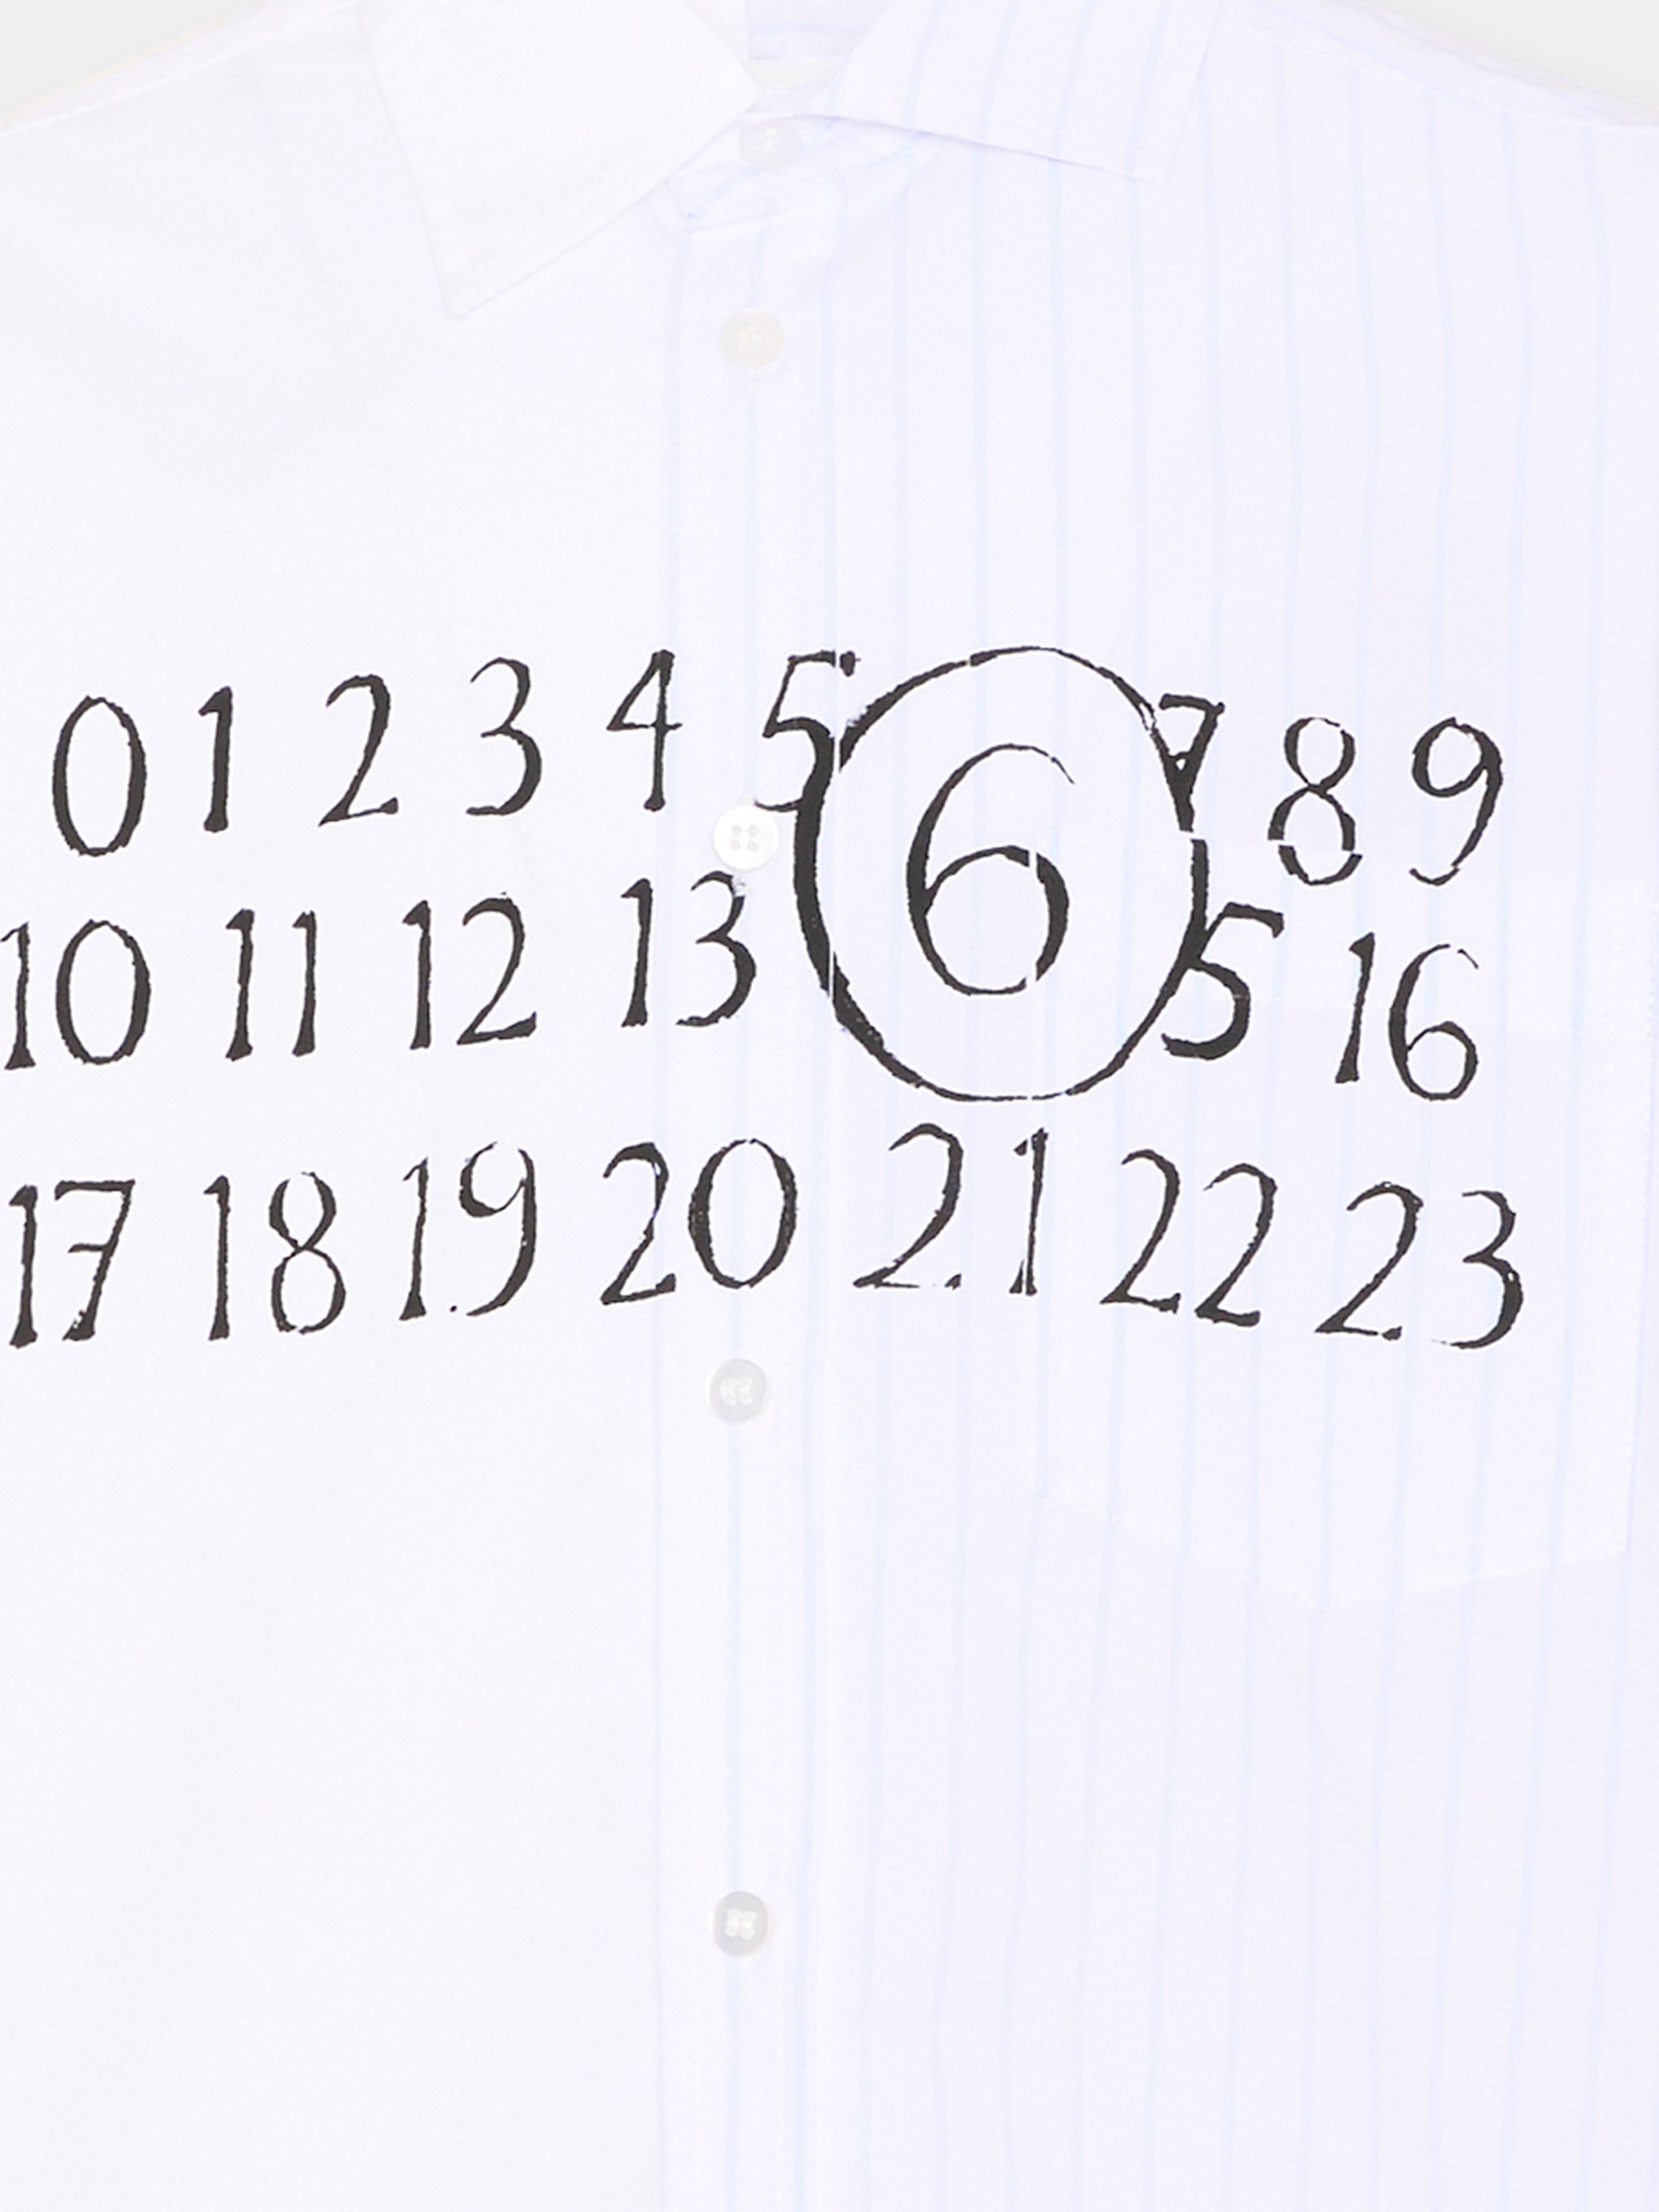 0 1 2 3 4 5 6 7 8 9
10 11 12 13 5 16
17 18 19 20 21 22 23